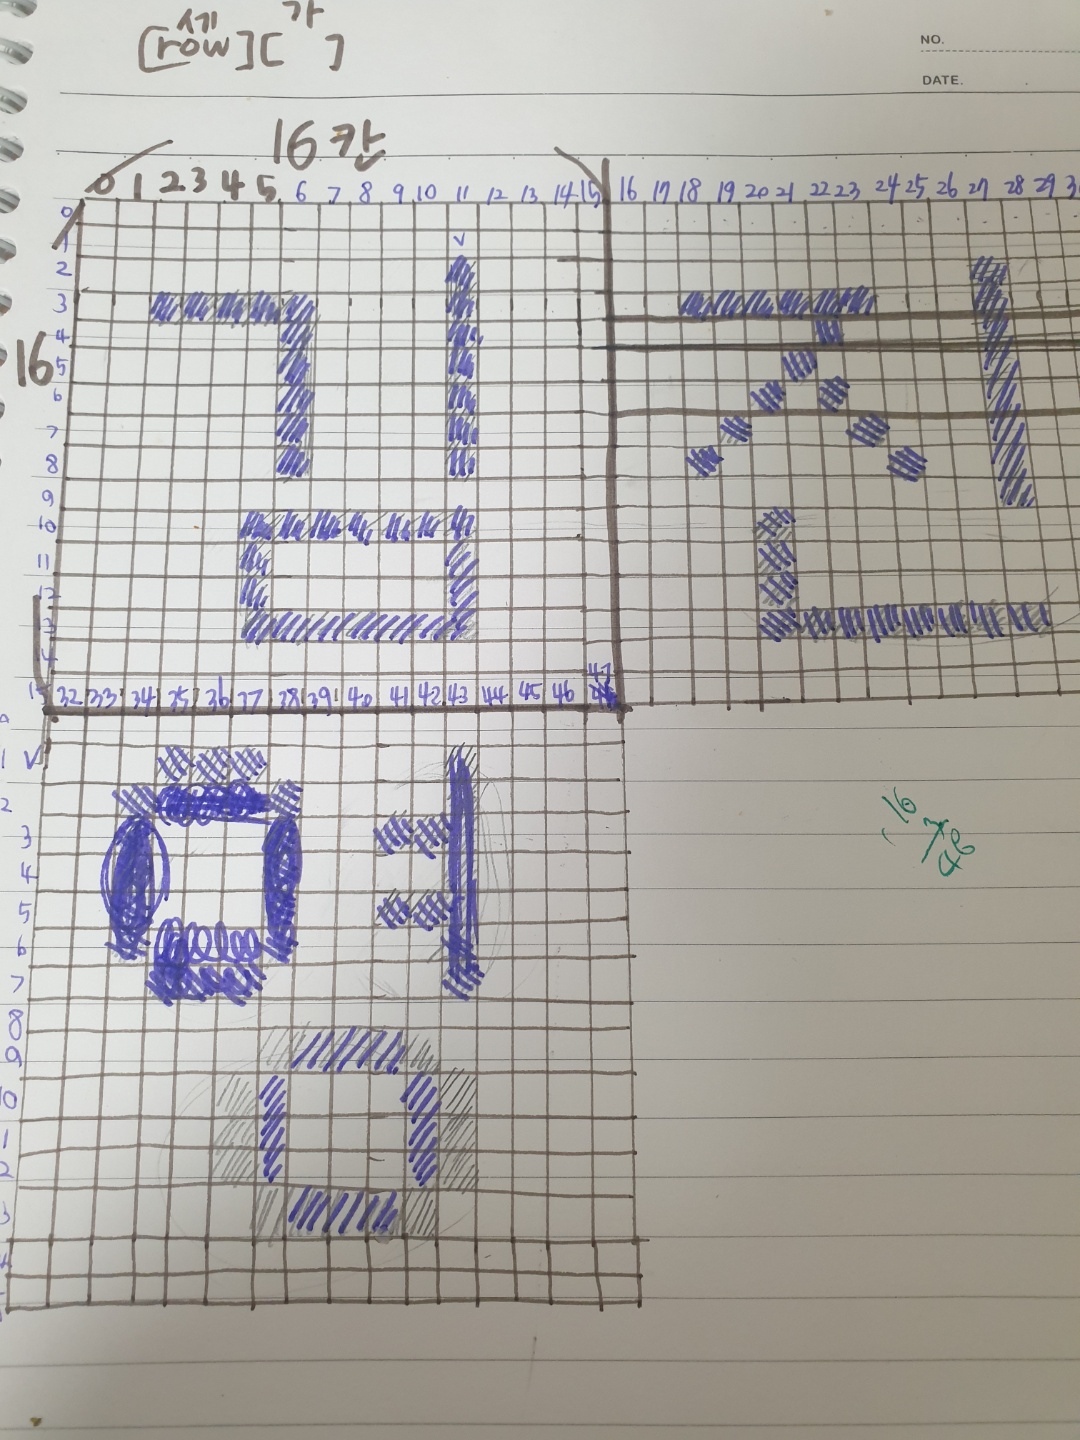 세 가
[row][ ]
NO.
DATE.
16칸
0 1 2 3 4 5 6 7 8 9 10 11 12 13 14 15 16 17 18 19 20 21 22 23 24 25 26 27 28 29 30
0
1
2
3
4
16
5
6
7
8
9
10
11
12
13
14
47
15 32 33 34 35 36 37 38 39 40 41 42 43 44 45 46
0
1
2
3
4
5
6
7
8
9
10
1
2
3
4
16
3
48